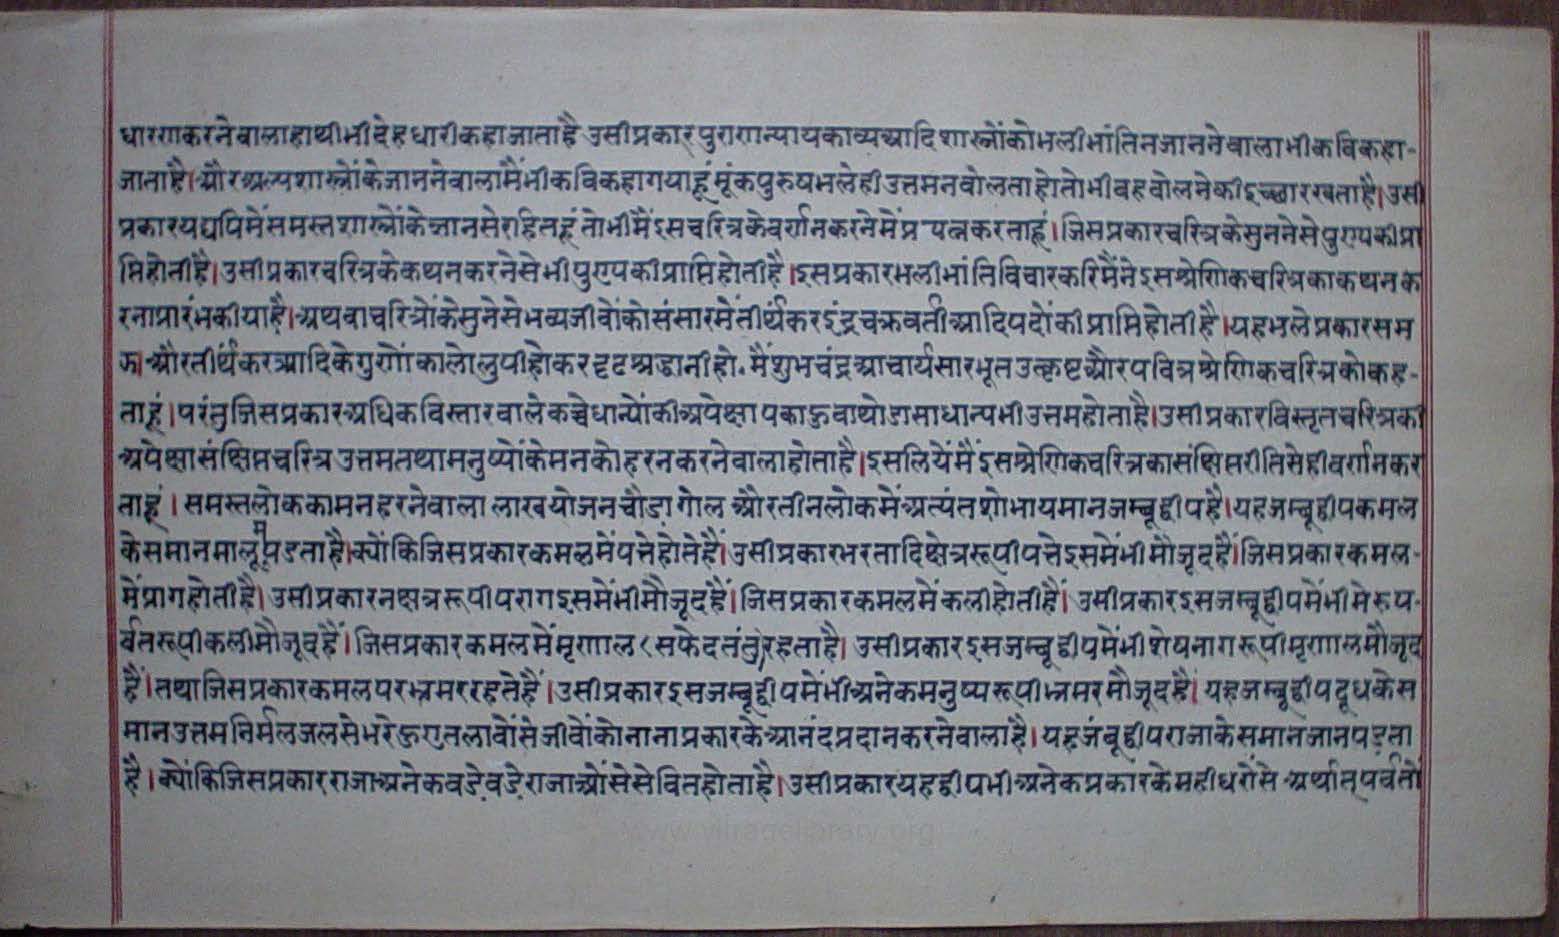 धारणकरनेवालाहाथीभीदेहधारीकहाजाताहै उसीप्रकारपुराणन्यायकाव्यआदिशास्त्रोंकोभलीभांतिनजाननेवालाभीकविकहा-
जाताहै।औरअल्पशास्त्रोंकेजाननेवालामैंभीकविकहागयाहूं मूंकपुरुषभलेहीउत्तमनवोलताहोतोभीवहवोलनेकीइच्छारखताहै।उसी
प्रकारयद्यपिमेंसमस्तशास्त्रोंकेज्ञानसेरहितहूं तोभीमैंइसचरित्रकेवर्णनकरनेमेंप्रयत्नकरताहूं।जिसप्रकारचरित्रकेसुननेसेपुण्यकीप्रा
प्तिहोतीहै।उसीप्रकारचरित्रकेकथनकरनेसेभीपुण्यकीप्राप्तिहोतीहै।इसप्रकारभलीभांतिविचारकरिमैंनेइसश्रेणिकचरित्रकाकथनक
रनाप्रारंभकीयाहै।अथवाचरित्रोंकेसुनेसेभव्यजीवोंकोसंसारमेंतीर्थंकरइंद्रचक्रवर्तीआदिपदोंकीप्राप्तिहोतीहै।यहभलेप्रकारसम
झ।औरतीर्थंकरआदिकेगुणोंकालोलुपीहोकरदृढश्रद्धानीहो.मैंशुभचंद्रआचार्यसारभूतउत्कृष्टऔरपवित्रश्रेणिकचरित्रकोकह-
ताहूं।परंतुजिसप्रकारअधिकविस्तारवालेकच्चेधान्योंकीअपेक्षापकाहुवाथोडासाधान्यभीउत्तमहोताहै।उसीप्रकारविस्तृतचरित्रकी
अपेक्षासंक्षिप्तचरित्रउत्तमतथामनुष्योंकेमनकोहरनकरनेवालाहोताहै।इसलियेंमैंइसश्रेणिकचरित्रकासंक्षिप्तरीतिसेहीवर्णनकर
ताहूं। समस्तलोककामनहरनेवालालाखयोजनचौडागोल औरतीनलोकमेंअत्यंतशोभायमानजम्बूद्वीपहै।यहजम्बूद्वीपकमल
केसमानमालूमपडताहै।क्योंकिजिसप्रकारकमलमेंपत्तेहोतेहैं।उसीप्रकारभरतादिक्षेत्ररूपीपत्तेइसमेंभीमौजूदहैं।जिसप्रकारकमल-
मेंप्रागहोतीहै। उसीप्रकारनक्षत्ररूपीपरागइसमेंभीमौजूदहैं।जिसप्रकारकमलमेंकलीहोतीहैं। उसीप्रकारइसजम्बूद्वीपमेंभीमेरुप-
र्वतरूपीकलीमौजूदहैं।जिसप्रकारकमलमेंमृणाल(सफेदतंतु)रहताहै। उसीप्रकारइसजम्बूद्वीपमेंभीशेषनागरूपीमृणालमौजूद
हैं।तथाजिसप्रकारकमलपरभ्रमररहतेहैं।उसीप्रकारइसजम्बूद्वीपमेंभीअनेकमनुष्यरूपीभ्रमरमौजूदहैं। यहजम्बूद्वीपदूधकेस
मानउत्तमनिर्मलजलसेभरेहुएतलावोंसेजीवोंकोनानाप्रकारकेआनंदप्रदानकरनेवालाहै।यहजंबूद्वीपराजाकेसमानजानपड़ता
है।क्योंकिजिसप्रकारराजाअनेकवड़ेवड़ेराजाओंसेसेवितहोताहै।उसीप्रकारयहद्वीपभीअनेकप्रकारकेमहीधरोंसेअर्थात्पर्वतों